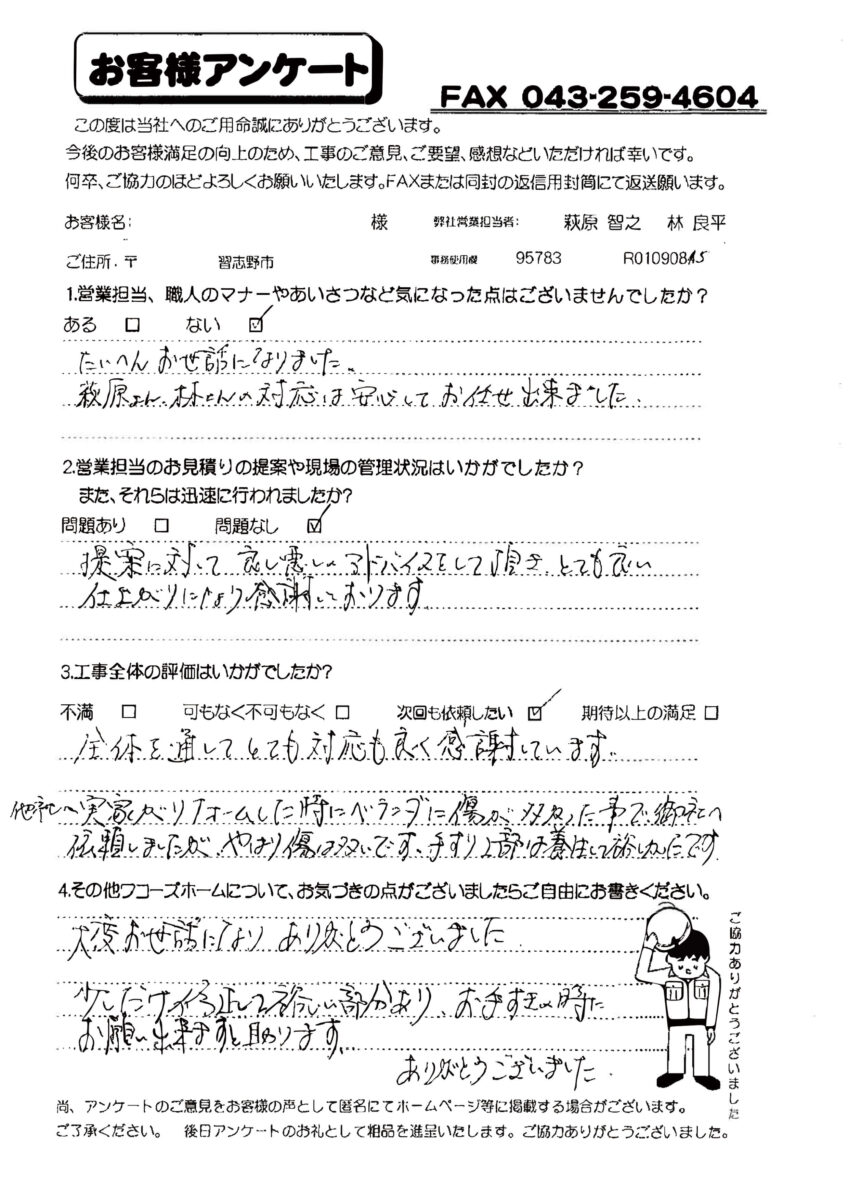 お客様アンケート
FAX 043-259-4604
この度は当社へのご用命誠にありがとうございます。
今後のお客様満足の向上のため、工事のご意見、ご要望、感想などいただければ幸いです。
何卒、ご協力のほどよろしくお願いいたします。FAXまたは同封の返信用封筒にて返送願います。
お客様名: 様 弊社営業担当者: 萩原 智之 林 良平
ご住所.〒 習志野市 事務使用欄 95783 R010908
1.営業担当、職人のマナーやあいさつなど気になった点はございませんでしたか?
ある □ ない ☑
たいへんお世話になりました。
萩原さん、林さんの対応は安心してお任せ出来ました.
2.営業担当のお見積りの提案や現場の管理状況はいかがでしたか?
また、それらは迅速に行われましたか?
問題あり □ 問題なし ☑
提案に対して良し悪しのアドバイスをして頂き、とても良い
仕上がりになり感謝しております
3.工事全体の評価はいかがでしたか?
不満 □ 可もなく不可もなく □ 次回も依頼したい ☑ 期待以上の満足 □
全体を通してとても対応も良く感謝しています。
他社へ実家がリフォームした時にベランダに傷が多かった事で御社へ
依頼しましたが、やはり傷は多いです、手すり上部は養生して欲しかったです
4.その他ワコーズホームについて、お気づきの点がございましたらご自由にお書きください。
大変お世話になりありがとうございました
少しだけ手直しして欲しい部分があり、お手すきの時に
お願い出来ますと助かります。
ありがとうございました.
ご協力ありがとうございました
尚、アンケートのご意見をお客様の声として匿名にてホームページ等に掲載する場合がございます。
ご了承ください。 後日アンケートのお礼として粗品を進呈いたします。ご協力ありがとうございました。